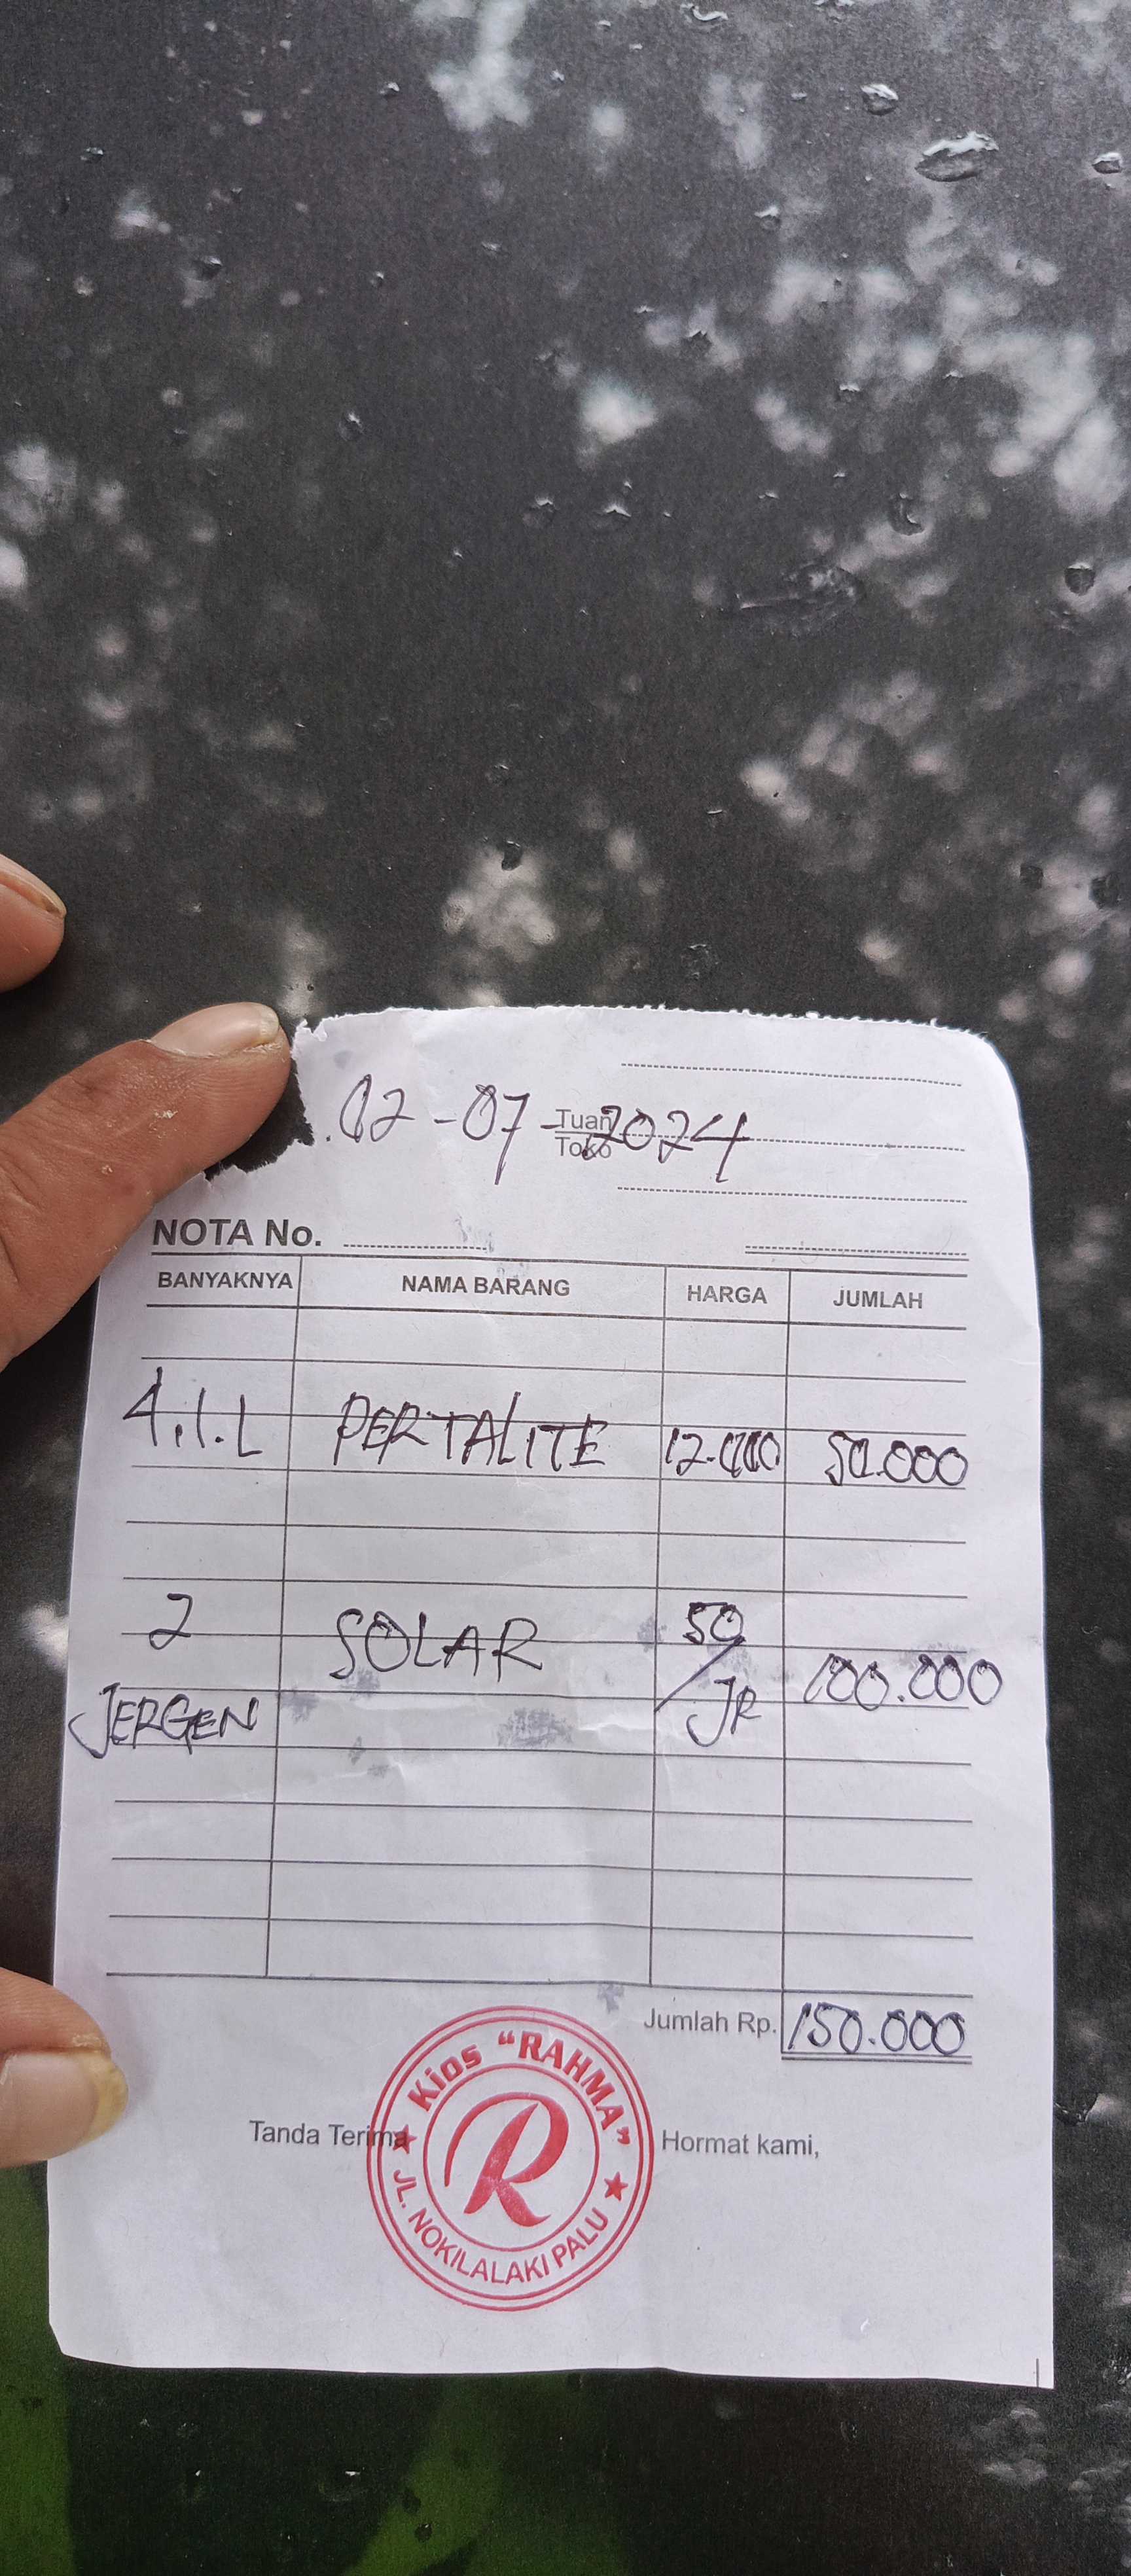 02-07-2024
Tuan
Toko
NOTA No.
BANYAKNYA NAMA BARANG HARGA JUMLAH
4.1.L PERTALITE 12.000 50.000
2 SOLAR 50 100.000
JERGEN /JR
Jumlah Rp. 150.000
Tanda Terima Hormat kami,
Kios "RAHMA"
R
JL. NOKILALAKI PALU